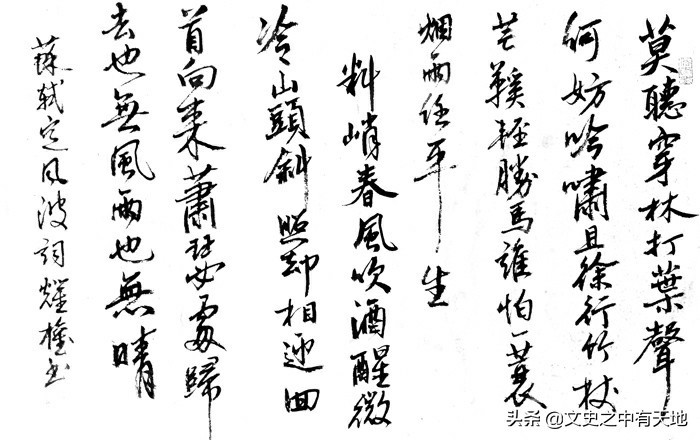 莫聽穿林打葉聲
何妨吟嘯且徐行竹杖
芒鞵輕勝馬誰怕一蓑
烟雨任平生
料峭春風吹酒醒微
冷山頭斜照却相迎回
首向来蕭瑟處歸
去也無風雨也無晴
蘇軾定风波詞耀书
头条 @文史之中有天地